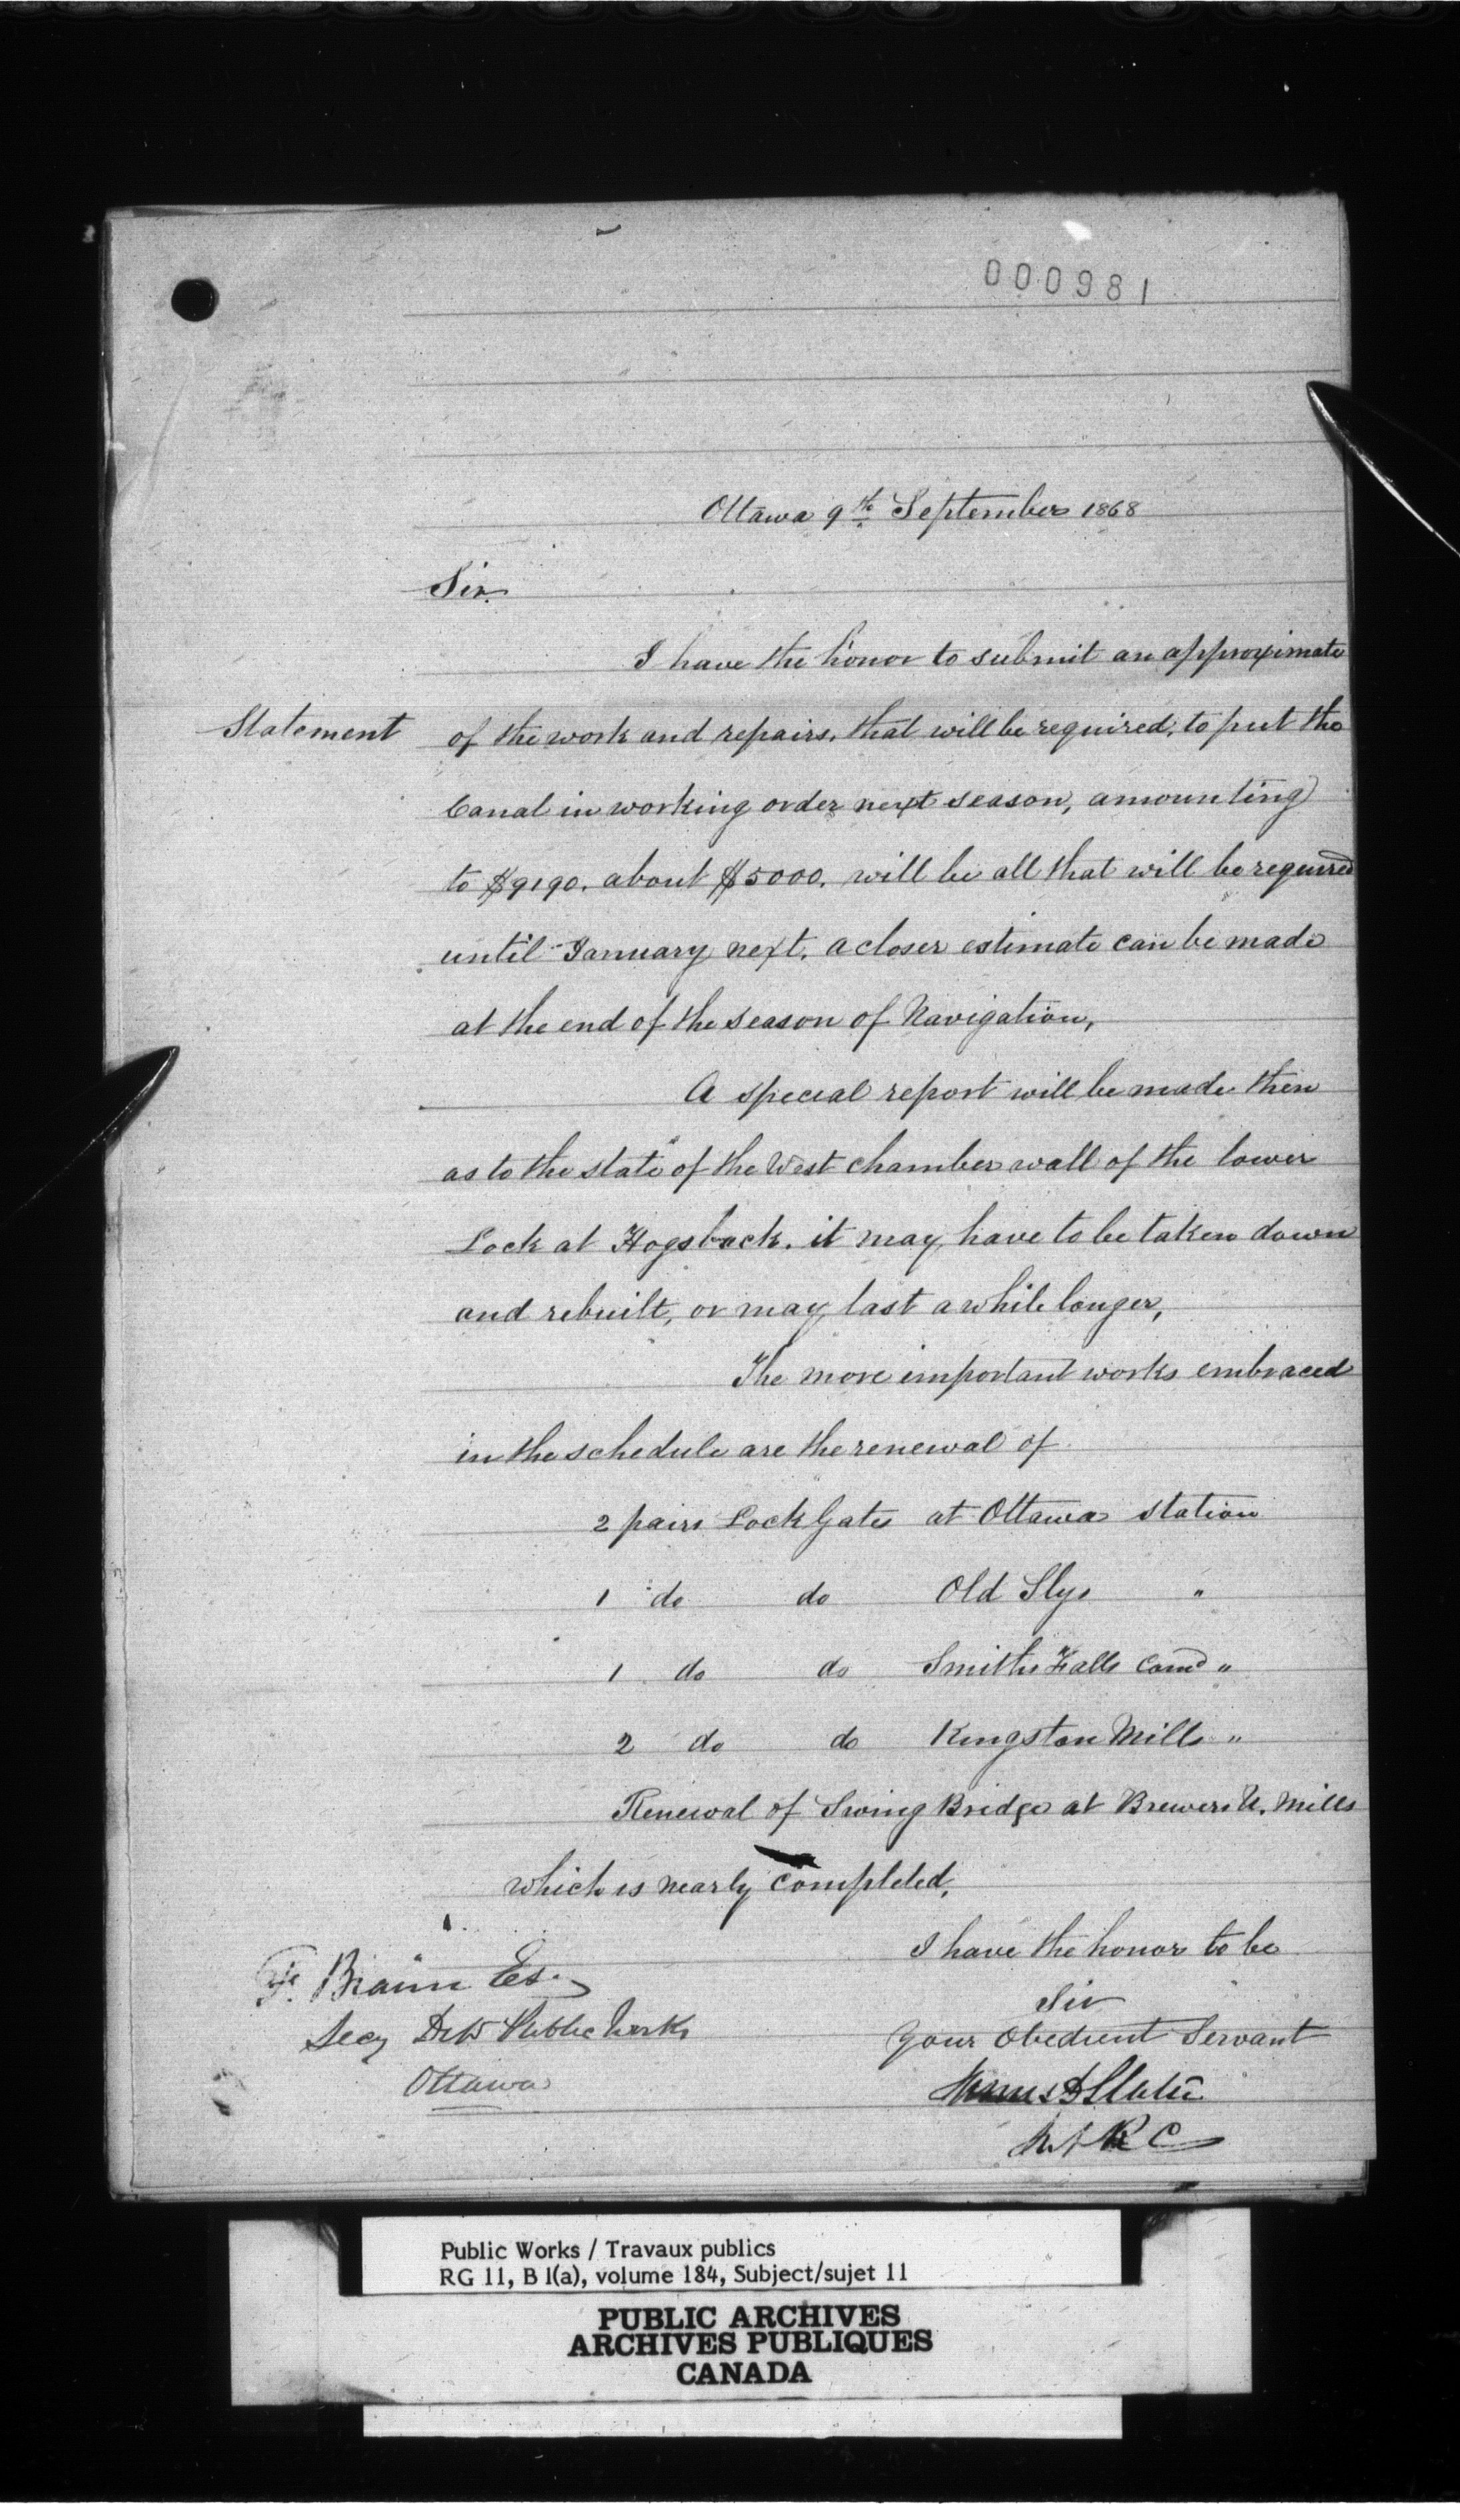 000981
Ottawa 9th September 1868
Sir
I have the honor to submit an approximate
Statement of the work and repairs, that will be required, to put the
Canal in working order next season, amounting
to $9190. about $5000. will be all that will be required
until January next. a closer estimate can be made
at the end of the season of Navigation,
A special report will be made then
as to the state of the West chamber wall of the lower
Lock at Hogsback. it may have to be taken down
and rebuilt, or may last a while longer,
The more important works embraced
in the schedule are the renewal of
2 pairs Lock Gates at Ottawa station
1 do do Old Slys "
1 do do Smiths Falls Comd "
2 do do Kingston Mills "
Renewal of Swing Bridge at Brewers U. Mills
which is nearly completed,
I have the honor to be
Sir
Your Obedient Servant
James D Slater
R C
F. Braun Es.
Secy Public Works
Ottawa
Public Works / Travaux publics
RG 11, B 1(a), volume 184, Subject/sujet 11
PUBLIC ARCHIVES
ARCHIVES PUBLIQUES
CANADA